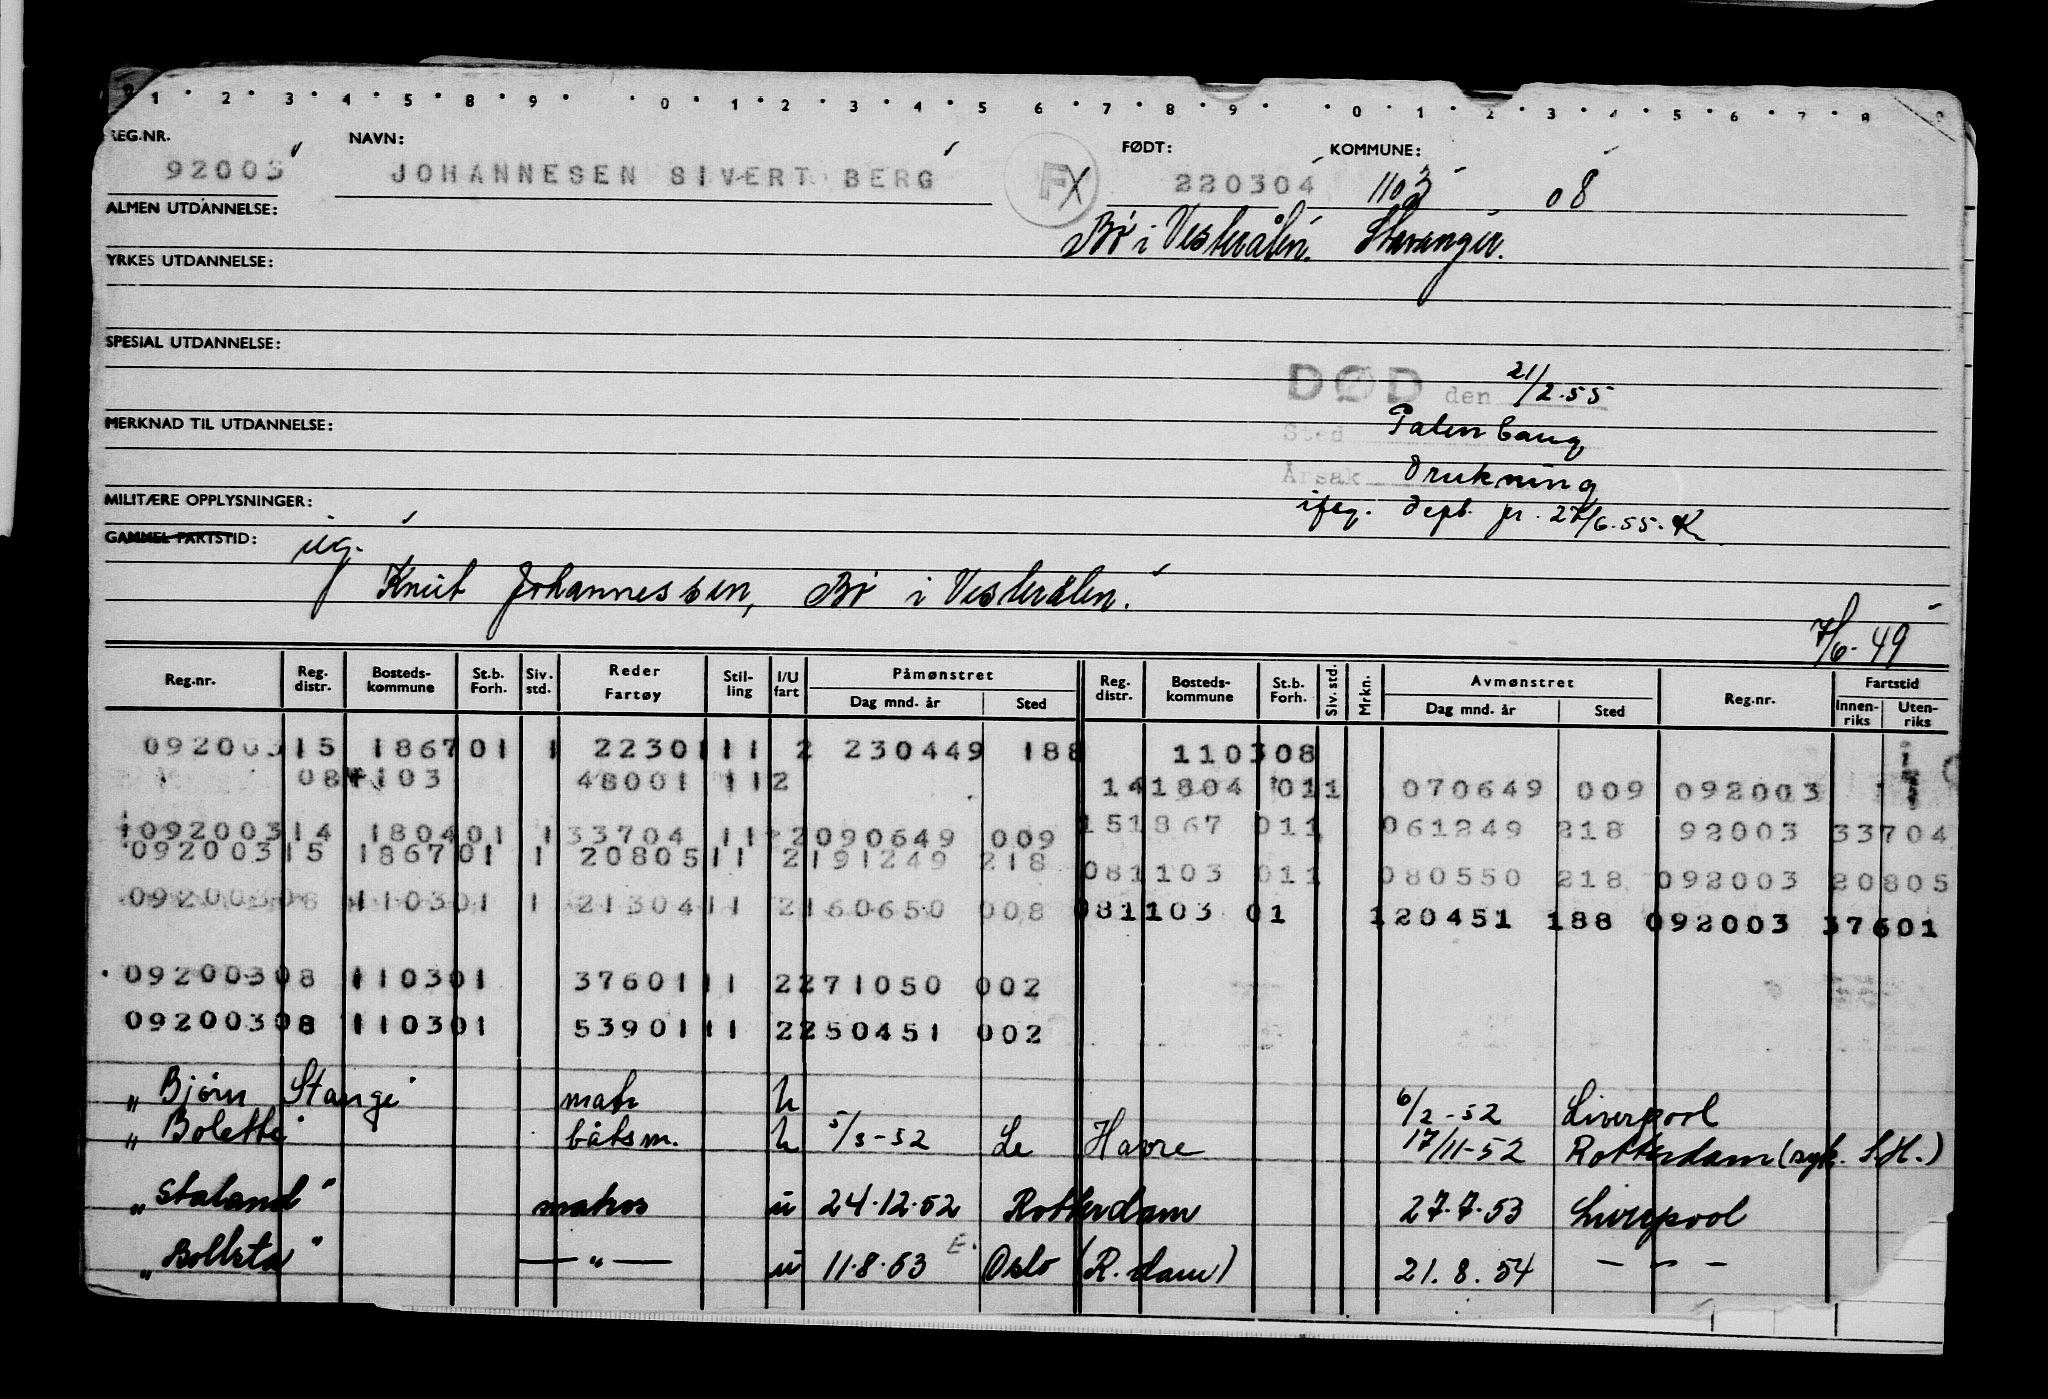 1 · 2 · 3 · 4 · 5 · 8 · 9 · 0 · 1 · 2 · 3 · 4 · 5 · 6 · 7 · 8 · 9 · 0 · 1 · 2 · 3 · 4 · 5 · 6 · 7 · 8 · 9
REG.NR. NAVN: FØDT: KOMMUNE:
92003 JOHANNESEN SIVERT BERG FX 220304 1103 08
ALMEN UTDANNELSE: Bø i Vesterålen. Stavanger.
YRKES UTDANNELSE:
SPESIAL UTDANNELSE:
DØD den 21/2.55
MERKNAD TIL UTDANNELSE: Sted Palembang
Årsak Drukning
MILITÆRE OPPLYSNINGER: iføg. dept. jr. 27/6.55. K
GAMMEL FARTSTID:
Knut Johannessen, Bø i Vesterålen.
7/6-49
Reg.nr. Reg. distr. Bosteds-kommune St.b. Forh. Siv. std. Reder Fartøy Stil-ling I/U fart Påmønstret Dag mnd. år Sted Reg. distr. Bosteds-kommune St.b. Forh. Siv. std. Mrkn. Avmønstret Dag mnd. år Sted Reg.nr. Fartstid Innen-riks Uten-riks
092003 15 1867 01 1 22301 11 2 230449 188 1103 08
08 1103 48001 11 2 14 1804 01 1 070649 009 092003
092003 14 1804 01 1 33704 11 2 090649 009 15 1867 01 1 061249 218 92003 33704
092003 15 1867 01 1 20805 11 2 191249 218 08 1103 01 1 080550 218 092003 20805
092003 08 1103 01 1 21304 11 2 160650 008 08 1103 01 120451 188 092003 37601
092003 08 1103 01 37601 11 2 271050 002
092003 08 1103 01 53901 11 2 250451 002
"Bjørn Stange" matr u 6/2-52 Liverpool
"Bolette" båtsm. u 5/3-52 Le Havre 17/11-52 Rotterdam (syk. S.H.)
"Staland" matros u 24.12.52 Rotterdam 27.7.53 Liverpool
"Bollsta" — " — u 11.8.53 E. Oslo (R.dam) 21.8.54 — " —